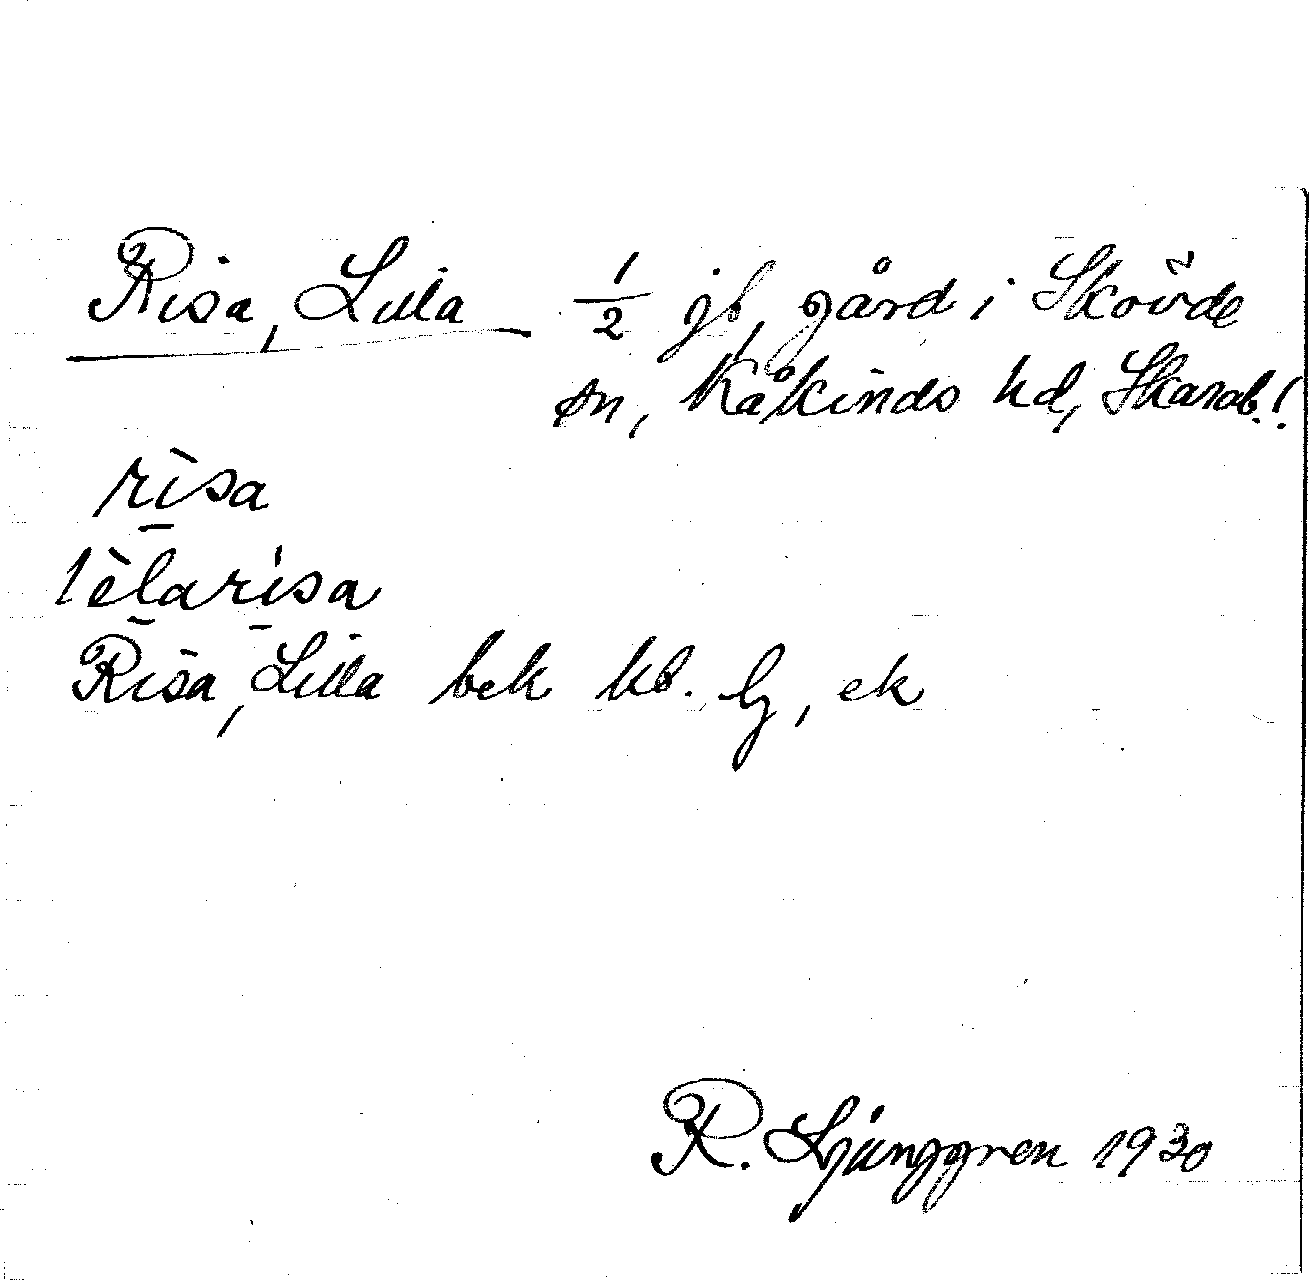 Risa, Lilla 1/2 jb, gård i Skövde
sn, Kåkinds hd, Skarab.!
rìsa
lèlarisa
Risa, Lilla bek kb. lj, ek
R. Ljunggren 1930